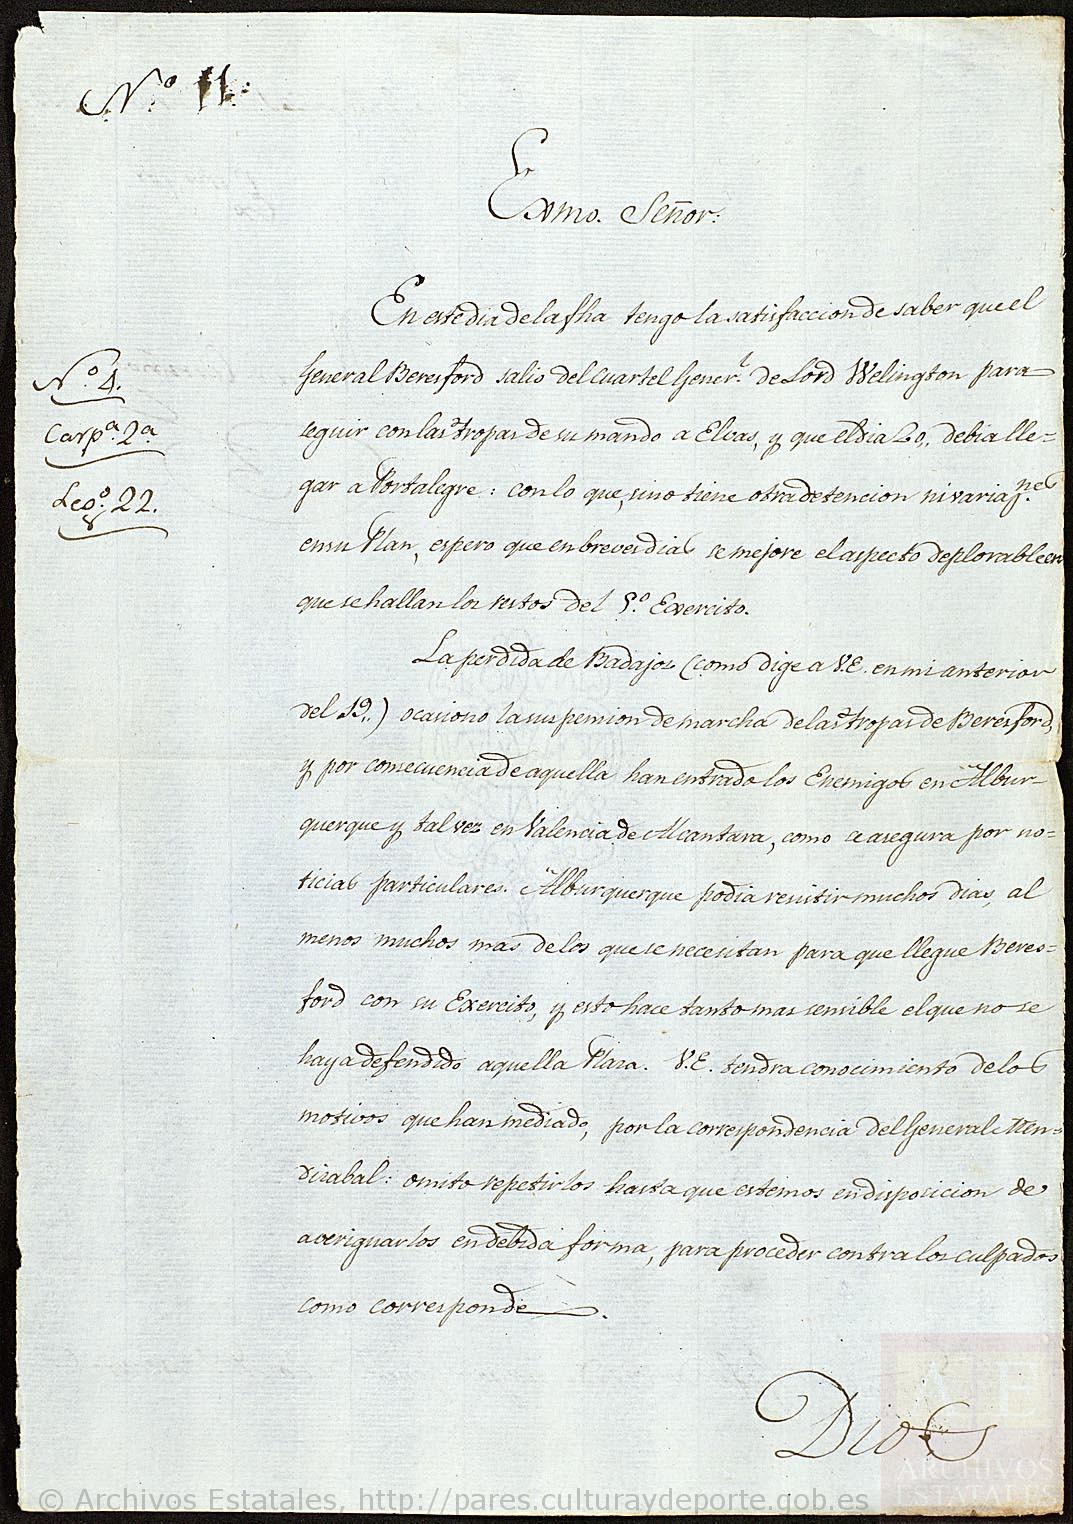 N.º 11.
Exmo. Señor.
En este dia de la fha tengo la satisfaccion de saber que el
General Beresford salio del Cuartel Gener.l de Lord Welington para
seguir con las tropas de su mando a Elvas, y que el dia 20,, debia lle=
gar a Portalegre: con lo que, si no tiene otra detencion ni varia.nes
en su Plan, espero que en breves dias se mejore el aspecto deplorable en
que se hallan los restos del 5.º Exercito.
La perdida de Badajoz (como dige a V.E. en mi anterior
del 19,,) ocasionó la suspension de marcha de las tropas de Beresford,
y por consecuencia de aquella han entrado los Enemigos en Albur-
querque y tal vez en Valencia de Alcantara, como se asegura por no=
ticias particulares. Alburquerque podia resistir muchos dias, al
menos muchos mas de los que se necesitan para que llegue Beres=
ford con su Exercito, y esto hace tanto mas sensible el que no se
haya defendido aquella Plaza. V.E. tendra conocimiento de los
motivos que han mediado, por la correspondencia del General Men=
dizabal: omito repetirlos hasta que estemos en disposicion de
averiguarlos en debida forma, para proceder contra los culpados
como corresponde.
Dios
N.º 4.
Carp.a 2.a
Leg.º 22.
© Archivos Estatales, http://pares.culturaydeporte.gob.es
AE
ARCHIVOS
ESTATALES